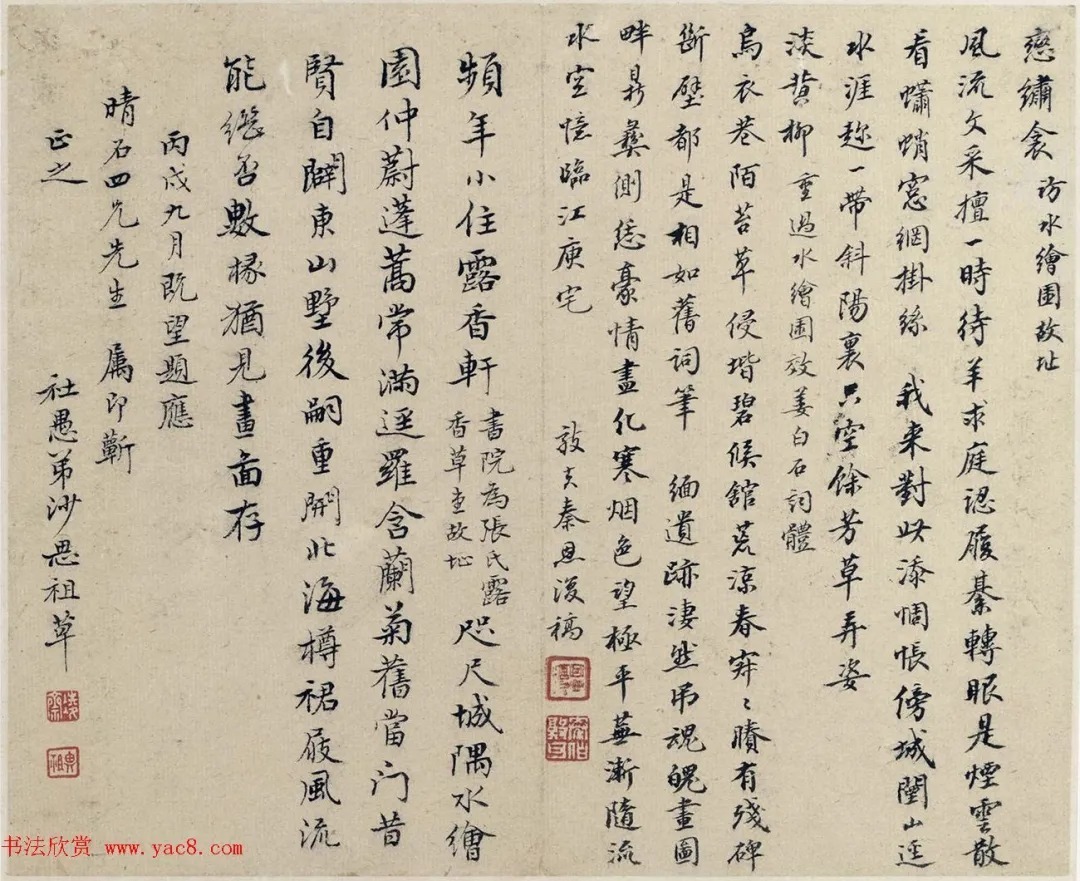 戀繡衾 訪水繪園故址
風流文采擅一時待羊求庭認履綦轉眼是煙雲散
看蠨蛸窓網掛絲 我来對此添惆悵傍城闉山逕
水涯趂一帶斜陽裏只空餘芳草弄姿
淡黄柳 重過水繪園效姜白石詞體
烏衣巷陌苔草侵堦碧候舘荒涼春寂〻賸有殘碑
斷壁都是相如舊詞筆 緬遺跡淒然吊魂魄畫圖
畔鼎彝側恁豪情盡化寒烟色望極平蕪漸隨流
水空憶臨江庾宅
敦夫秦恩復稿
頻年小住露香軒 書院為張氏露
香草堂故址 咫尺城隅水繪
園仲蔚蓬蒿常滿逕羅含蘭菊舊當门昔
賢自闢東山墅後嗣重開北海樽裙屐風流
能繼否數椽猶見畫啚存
丙戌九月既望題應
晴石四兄先生 属印蘄
正之
社愚弟沙思祖草
书法欣赏 www.yac8.com